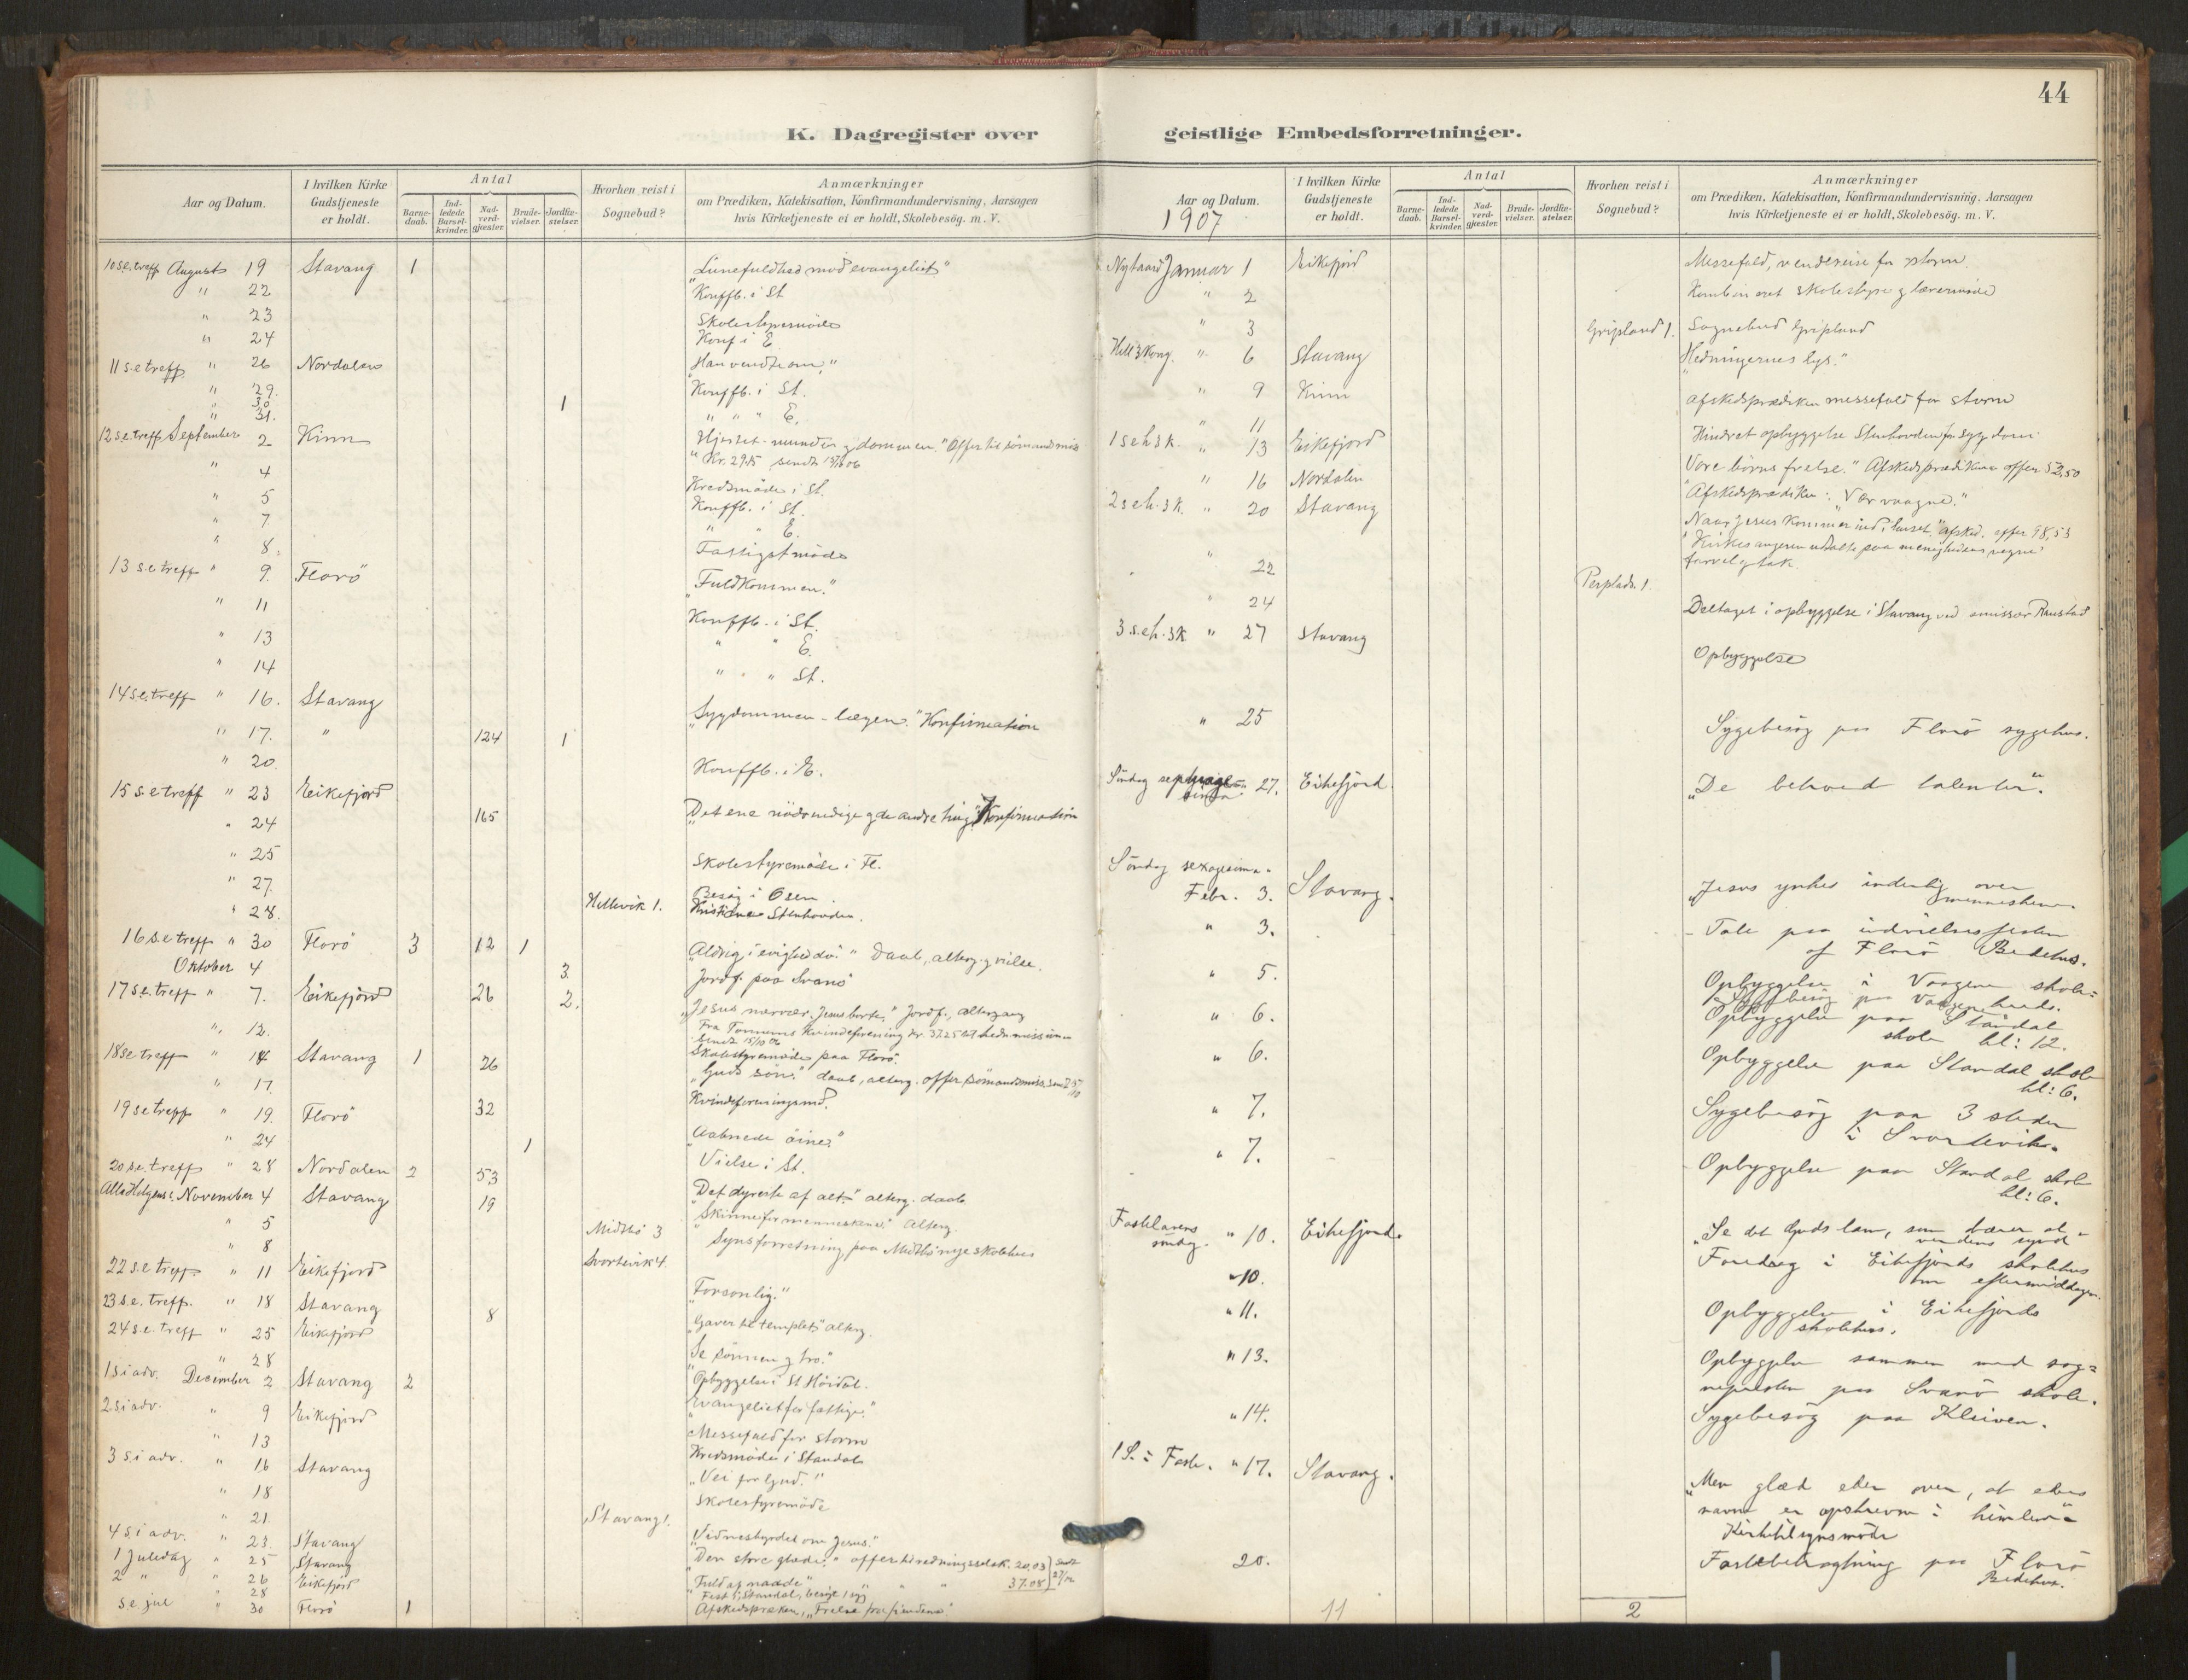 44
K. Dagregister over
geistlige Embedsforretninger.
Aar og Datum.
I hvilken Kirke Gudstjeneste er holdt.
Antal
Barne-daab.
Ind-ledede Barsel-kvinder.
Nad-verd-gjæster.
Brude-vielser.
Jordfæ-stelser.
Hvorhen reist i Sognebud?
Anmærkninger
om Prædiken, Katekisation, Konfirmandundervisning, Aarsagen
hvis Kirketjeneste ei er holdt, Skolebesög. m. V.
10 s.e. treff August 19 Stavang 1
" 22 Konffb. i St
" 23 Skolestyremöde
" 24 Konf i E
11 s.e treff " 26 Nordalen "Han vendte om."
" 29. Konffb. i St.
" 30 1
" 31. " " " E.
12 s.e. treff September 2 Kinn Hjertet-munden g dommen." Offer til sömandsmis
Kr. 29.15 sendt
" 4 Kredsmöde i St.
" 5 Konffb. i St.
" 7 " " E.
" 8. Fattigstmöde
13 s.e treff " 9. Florö "Fuldkommen."
" 11 Konffb. i St.
" 13 " " E.
" 14 " " St.
14 s.e. treff " 16. Stavang "Sygdommen - lægen." Konfirmation
" 17. " 124 1
" 20. Konffb. i E.
15 s.e treff " 23 Eikefjord "Det ene nödvendige g de andre ting" Konfirmation
" 24 165
" 25 Skolestyremöde i Fl.
" 27. Besög i Osen
" 28. Hellevik 1. Stenhovden.
16 s.e treff " 30 Florö 3 12 1 "Aldrig i evighed dö." Daab, alterg. g vielse.
Oktober 4 3 Jordf. paa Svanö
17 s.e. treff " 7. Eikefjord 26 2. "Jesus nærvær. Jesus borte." Jordf., altergang
Kvindeforening kr. 37.25 til hedn.missionen
sendt 15/10 06
" 12. Skolestyremöde paa Florö
18 s.e treff " 14 Stavang 1 26 "Guds sön." daab, alterg. offer sömandsmis.
" 17. Kvindeforeningsmd.
19 s.e treff " 19. Florö 32 "Aabnede öine."
" 24 1 Vielse i St.
20 s.e. treff " 28 Nordalen 2 53 "Det dyreste af alt." alterg. daab
Alle Helgens s. November 4 Stavang 19 "Skinne for menneskene" alterg.
" 5 Midtbö 3 Synsforretning paa Midtbö nye skolehus
" 8 Svortevik 4.
22 s.e treff " 11 Eikefjord "Forsonlig."
23 s.e. treff. " 18 Stavang 8 "Gaver til templet" alterg.
24 s.e. treff " 25 Eikefjord "Se sönnen g tro."
" 28 Opbyggelse i St Hördal.
1 s i adv. December 2 Stavang 2 "Evangeliet for fattige."
2 s i adv. " 9 Eikefjord Messefald for storm
" 13 Kredsmöde i Standal
3 s i adv. " 16 Stavang "Vei for Gud."
" 18 Skolestyremöde
" 21. Stavang 1.
4 s. i adv. " 23. Stavang "Vidnesbyrdet om Jesus."
1 Juledag " 25 Stavang "Den store glæde." offer til redningsselsk. 20.03
2 " " 26 Eikefjord "Fuld af naade" " " 37.08
" 28 Fest i Standal, besög i
s.e. jul " 30 Florö 1 Afskedspræken, "Frelse fra synderne"
Aar og Datum.
1907
I hvilken Kirke Gudstjeneste er holdt.
Antal
Barne-daab.
Ind-ledede Barsel-kvinder.
Nad-verd-gjæster.
Brude-vielser.
Jordfæ-stelser.
Hvorhen reist i Sognebud?
Anmærkninger
om Prædiken, Katekisation, Konfirmandundervisning, Aarsagen
hvis Kirketjeneste ei er holdt, Skolebesög. m. V.
Nytaarsd Januar 1 Eikefjord Messefald, vendereise for storm.
" 2 Kombineret skolestyre g lærermöde
" 3 Gripland 1. Sognebud Gripland
Hell 3 Kong. " 6 Stavang "Hedningernes lys."
" 9 Kinn Afskedsprædiken messefald for storm
" 11 Hindret opbyggelse Stenhovden for sygdom
1 s e h 3 k. " 13 Eikefjord Vore börns frelse." Afskedsprædiken offer 52,50
" 16 Nordalen Afskedsprædiken: "Vær vaagne."
2 s e h. 3 k. " 20 Stavang "Naar Jesus kommer ind i huset." afsked. offer 98,53
Kirkesangeren udtalte paa menighedens vegne
farvel g tak.
" 22 Perplads. 1.
" 24 Deltaget i opbyggelse i Stavang ved emissær Ramstad
3 s.e.h. 3k " 27 Stavang Opbyggelse
" 25 Sygebesög paa Florö sygehus.
Söndag 27. Eikefjord. "De betroede talenter."
Söndag sexagesima.
Febr. 3. Stavang. "Jesus ynkes inderlig over
menneskene
" 3. Tale paa indvielsesfesten
af Florö Bedehus.
" 5. Opbyggelse i Vaagene skole
" 6. Opbyggelse paa Standal
skole kl: 12.
" 6. Opbyggelse paa Standal skole
kl: 6.
" 7. Sygebesög paa 3 steder
i Svortevik.
" 7. Opbyggelse paa Standal skole
kl: 6.
Fastelavens
söndag. " 10. Eikefjord. "Se det Guds lam, som bærer al
verdens synd"
" 10. Foredrag i Eikefjords skolehus
om eftermiddagen.
" 11. Opbyggelse i Eikefjords
skolehus.
" 13. Opbyggelse sammen med sog=
nepresten paa Svanö skole.
" 14. Sygebesög paa Kleiven.
1 S. i Faste. " 17. Stavang. "Men glæd eder over, at eders
navne er opskrevne i himlene"
Kirketilsynsmöde
20. Fastebetragtning paa Florö
Bedehus.
11
2